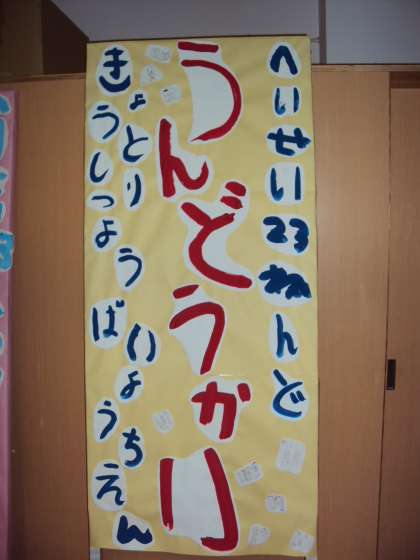 へいせい23ねんど
うんどうかい
きょうとしりつようばいようちえん